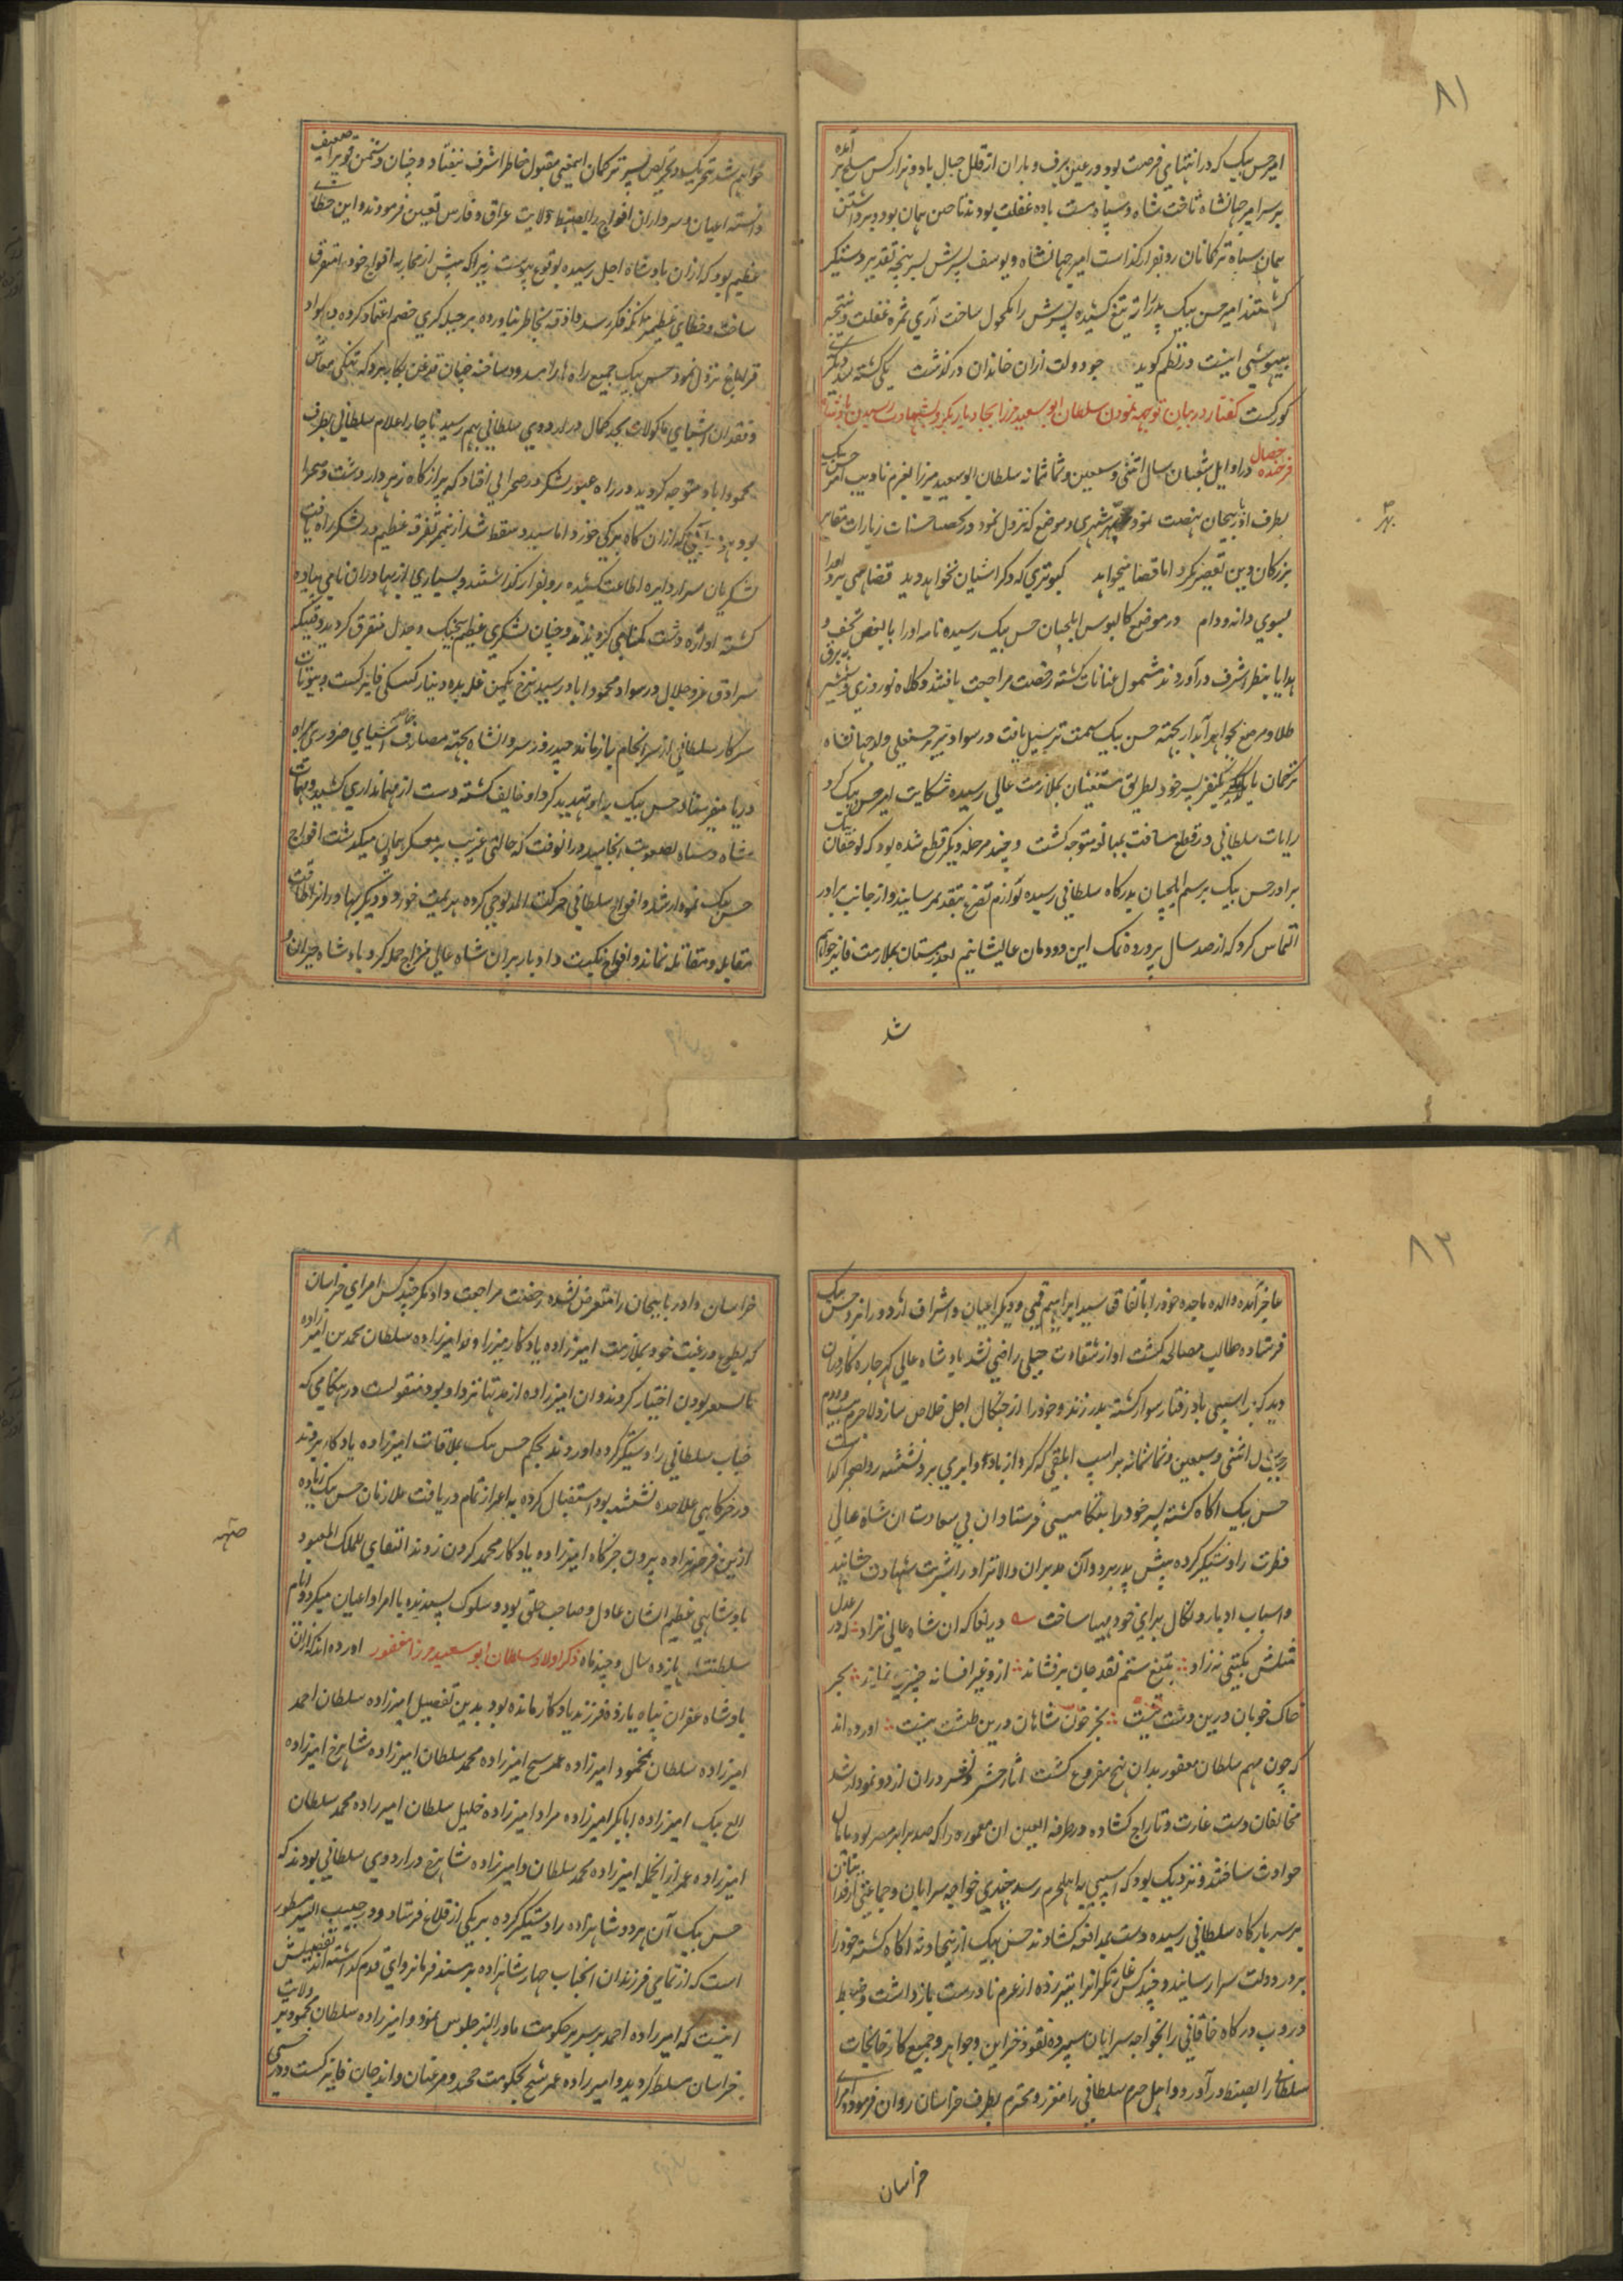 ٨١
امیر حسن بیک که در انتهاز فرصت بود در عین برف و باران از قلل جبال با دو هزار کس مسلح بر آمده
بر سر امیر جهانشاه تاخت شاه و سپاه مست باده غفلت بودند تا حین همان بود و برداشتن
همان سپاه ترکمانان رو بفرار گذاشت امیر جهانشاه و یوسف پسرش بسر پنجه تقدیر دستگیر
گشتند امیر حسن بیک پدر را ته تیغ کشیده پسرش را مکحول ساخت آری ثمره غفلت و نتیجه
بیهوشی اینست در نظم گوید چو دولت ازان خاندان در گذشت یکی کشته شد دیگری
کور گشت گفتار در بیان توجه نمودن سلطان ابو سعید میرزا بجانب دیاربکر و بشهادت رسیدن پادشاه
فرخنده خصال در اوایل شعبان سال اثنی و سبعین و ثمانمائه سلطان ابو سعید میرزا بعزم تادیب امیر حسن بیک
بطرف اذربیجان نهضت نمود بهر شهری و موضع که نزول نمود در تحصیل حسنات زیارات مقابر
بزرکان دین تقصیر نکرد اما قضا میخواهد کبوتری که دکر اشیان نخواهد دید قضا همی برد او را
بسوی دانه و دام در موضع کالپوس ایلچیان حسن بیک رسیده نامه او را با بعض تحف و
هدایا بنظر اشرف در آوردند مشمول عنایات کشته رخصت مراجعت یافتند و کلاه نوروزی و شمشیر
طلا و مرصع بجواهر آبدار بجهته حسن بیک سمت ترسیل یافت در سواد تبریز حسنعلی ولد جهانشاه
ترخمان با پسر خود بطریق مستغیثان بملازمت عالی رسیده شکایت امیر حسن بیک کرد
رایات سلطانی در قطع مسافت بمبالغه متوجه کشت و چند مرحله دیکر قطع شده بود که
برادر حسن بیک برسم ایلچیان بدرکاه سلطانی رسیده لوازم تضرع بتقدیم رسانید و از جانب برادر
التماس کرد که از صد سال پرورده نمک این دودمان عالیشانیم بعد زمستان بملازمت فایز خواهم
شد
خواهم شد بتحریک و تحریص پسر ترکمان اینمعنی مقبول خاطر اشرف نیفتاد و چنان دشمن قویرا ضعیف
دانسته اعیان و سرداران افواج را بضبط ولایت عراق و فارس تعیین فرمودند و این خطای
عظیم بود که ازان پادشاه اجل رسیده بوقوع پیوست زیرا که پیش از محاربه افواج خود را متفرق
ساخت و خطای عظیمتر آنکه فکر رسد و اذوقه بخاطر نیاورده بر حیله کری خصم اعتماد کرده در سواد
قراباغ نزول نمود حسن بیک جمیع راه ها را مسدود ساخته چنان قدغن بکار برد که تنکی معاش
و فقدان اشیای ماکولات بحد کمال در اردوی سلطانی بهم رسید ناچار اعلام سلطانی بطرف
محموداباد متوجه کردید در راه عبور لشکر در صحرایی افتاد که پر از کاه زهردار دشت و صحرا
بود که ازان کاه برکی خورد اماسید و سقط شد ازینجهت تفرقه عظیم در لشکر راه یافت
لشکریان سر از دایره اطاعت کشیده رو بفرار گذاشتند و بسیاری از بهادران نامی پیاده
کشته اواره دشت کمنامی کردیدند و چنان لشکری عظیم بیجنک و جدال متفرق کردید و قتیکه
سرادق عز و جلال در سواد محموداباد رسید نرخ یکمن غله بده دینار کپکی فایز کشت و بیوتات
سرکار سلطانی از سرانجام باز ماند چند روز شروانشاه بجهته مصارف خاصه اشیای ضروری براه
دریا میفرستاد حسن بیک بر او تهدید کرد او خایف کشته دست از مهمانداری کشید و مهمات
شاه و سپاه بصعوبت انجامید در انوقت که حالتی غریب بر معسکر همایون میکذشت افواج
حسن بیک نمودار شد و افواج سلطانی حرکت المذبوحی کرده هزیمت خورد و دیکر بهادرانرا طاقت
مقابله و مقاتله نماند و افواج نکبت و ادبار بران شاه عالی مزاج حمله کرد پادشاه حیران و
٨٢
عاجز آمده والده ماجده خود را باتفاق سید ابراهیم قمی و دیکر اعیان و اشراف اردو را نزد حسن بیک
فرستاده طالب مصالحه کشت او از شقاوت جبلی راضی نشد پادشاه عالی کهر چاره کار چنان
دید که بر اسپی باد رفتار سوار کشته بدر زند و خود را از چنکال اجل خلاص سازد لاجرم
رجب سال اثنی و سبعین و ثمانمائه بر اسپ ابلقی که کرو از باد و ابر می برد نشسته رو بصحرا کذاشت
حسن بیک اکاه کشته پسر خود را بتکامیشی فرستاد ان بی سعادت ان شاه عالی
فطرت را دستگیر کرده پیش پدر برد و آن مدبران والا نژاد را شربت شهادت چشانید
و اسباب ادبار و نکال برای خود مهیا ساخت دریغا که ان شاه عالی نژاد که در عدل
مثلش بکیتی نزاد بتیغ ستم نقد جان بر فشاند ازو غیر افسانه چیزی نماند بجز
خاک خوبان درین دشت نیست بجز خون شاهان درین طشت نیست اورده اند
که چون مهم سلطان مغفور بدان نهج مفروغ کشت اثار حشر و نشر دران اردو نمودار شد
مخالفان دست غارت و تاراج کشاده در طرفه العین ان معموره را که صد برابر مصر بود پامال
حوادث ساختند و نزدیک بود که اسیبی به اهلحرم رسد چندی خواجه سرایان و جماعتی از فدائیان
بر سر بارکاه سلطانی رسیده دست بمدافعه کشادند حسن بیک ازینحادثه اکاه کشته خود را
بر در دولت سرا رسانید و چند کس غارتکرانرا بتیر زده از عزم نادرست باز داشت و ضبط
در و ب درکاه خاقانی را بخواجه سرایان سپرده نقود و خزاین و جواهر و جمیع کارخانجات
سلطانی را بضبط در آورد و اهل حرم سلطانی را معزز و محترم بطرف خراسان روان فرمود و امرای
خراسان
خراسان و اذربایجان را متعرض نشده رخصت مراجعت داد مکر چند کس امرای خراسان
که بطوع و رغبت خود بملازمت امیرزاده یادکار میرزا ولد امیرزاده سلطان محمد بن امیرزاده
بایسنغر بودن اختیار کردند و ان امیرزاده از مدتها نزد او بود منقولست در هنکامی که
جناب سلطانی را دستگیر کرده اوردند بحکم حسن بیک بملاقات امیرزاده یادکار بردند
در خرکاهی علاحده نشسته بود استقبال کرده به اعزاز تمام دریافت ملازمان حسن بیک زیاده
ازین فرصت نداده بیرون خرکاه امیرزاده یادکار محمد کردن زدند البقای للملک المعبود
پادشاهی عظیم الشان عادل و صاحب خلق بود و سلوک پسندیده با امرا و اعیان میکرد و ایام
سلطنتش یازده سال و چند ماه ذکر اولاد سلطان ابو سعید میرزا مغفور اورده اند که ازان
پادشاه غفران پناه یازده فرزند یادکار مانده بود بدین تفصیل امیرزاده سلطان احمد
امیرزاده سلطان محمود امیرزاده عمر شیخ امیرزاده محمد سلطان امیرزاده شاهرخ امیرزاده
الغ بیک امیرزاده ابابکر امیرزاده مراد امیرزاده خلیل سلطان امیرزاده محمد سلطان
امیرزاده عمر ازانجمله امیرزاده محمد سلطان و امیرزاده شاهرخ در اردوی سلطانی بودند که
حسن بیک آن هر دو شاهزاده را دستگیر کرده بر یکی از قلاع فرستاد و در حبیب السیر مسطور
است که از تمامی فرزندان انجناب چهار شاهزاده بر مسند فرمانروای قدم کذاشته اند تفصیلش
اینست که امیرزاده احمد بر سریر حکومت ماورالنهر جلوس نمود و امیرزاده سلطان محمود بر ولایت
خراسان مسلط کردید و امیرزاده عمر شیخ بحکومت و اندجان فایز کشت و در